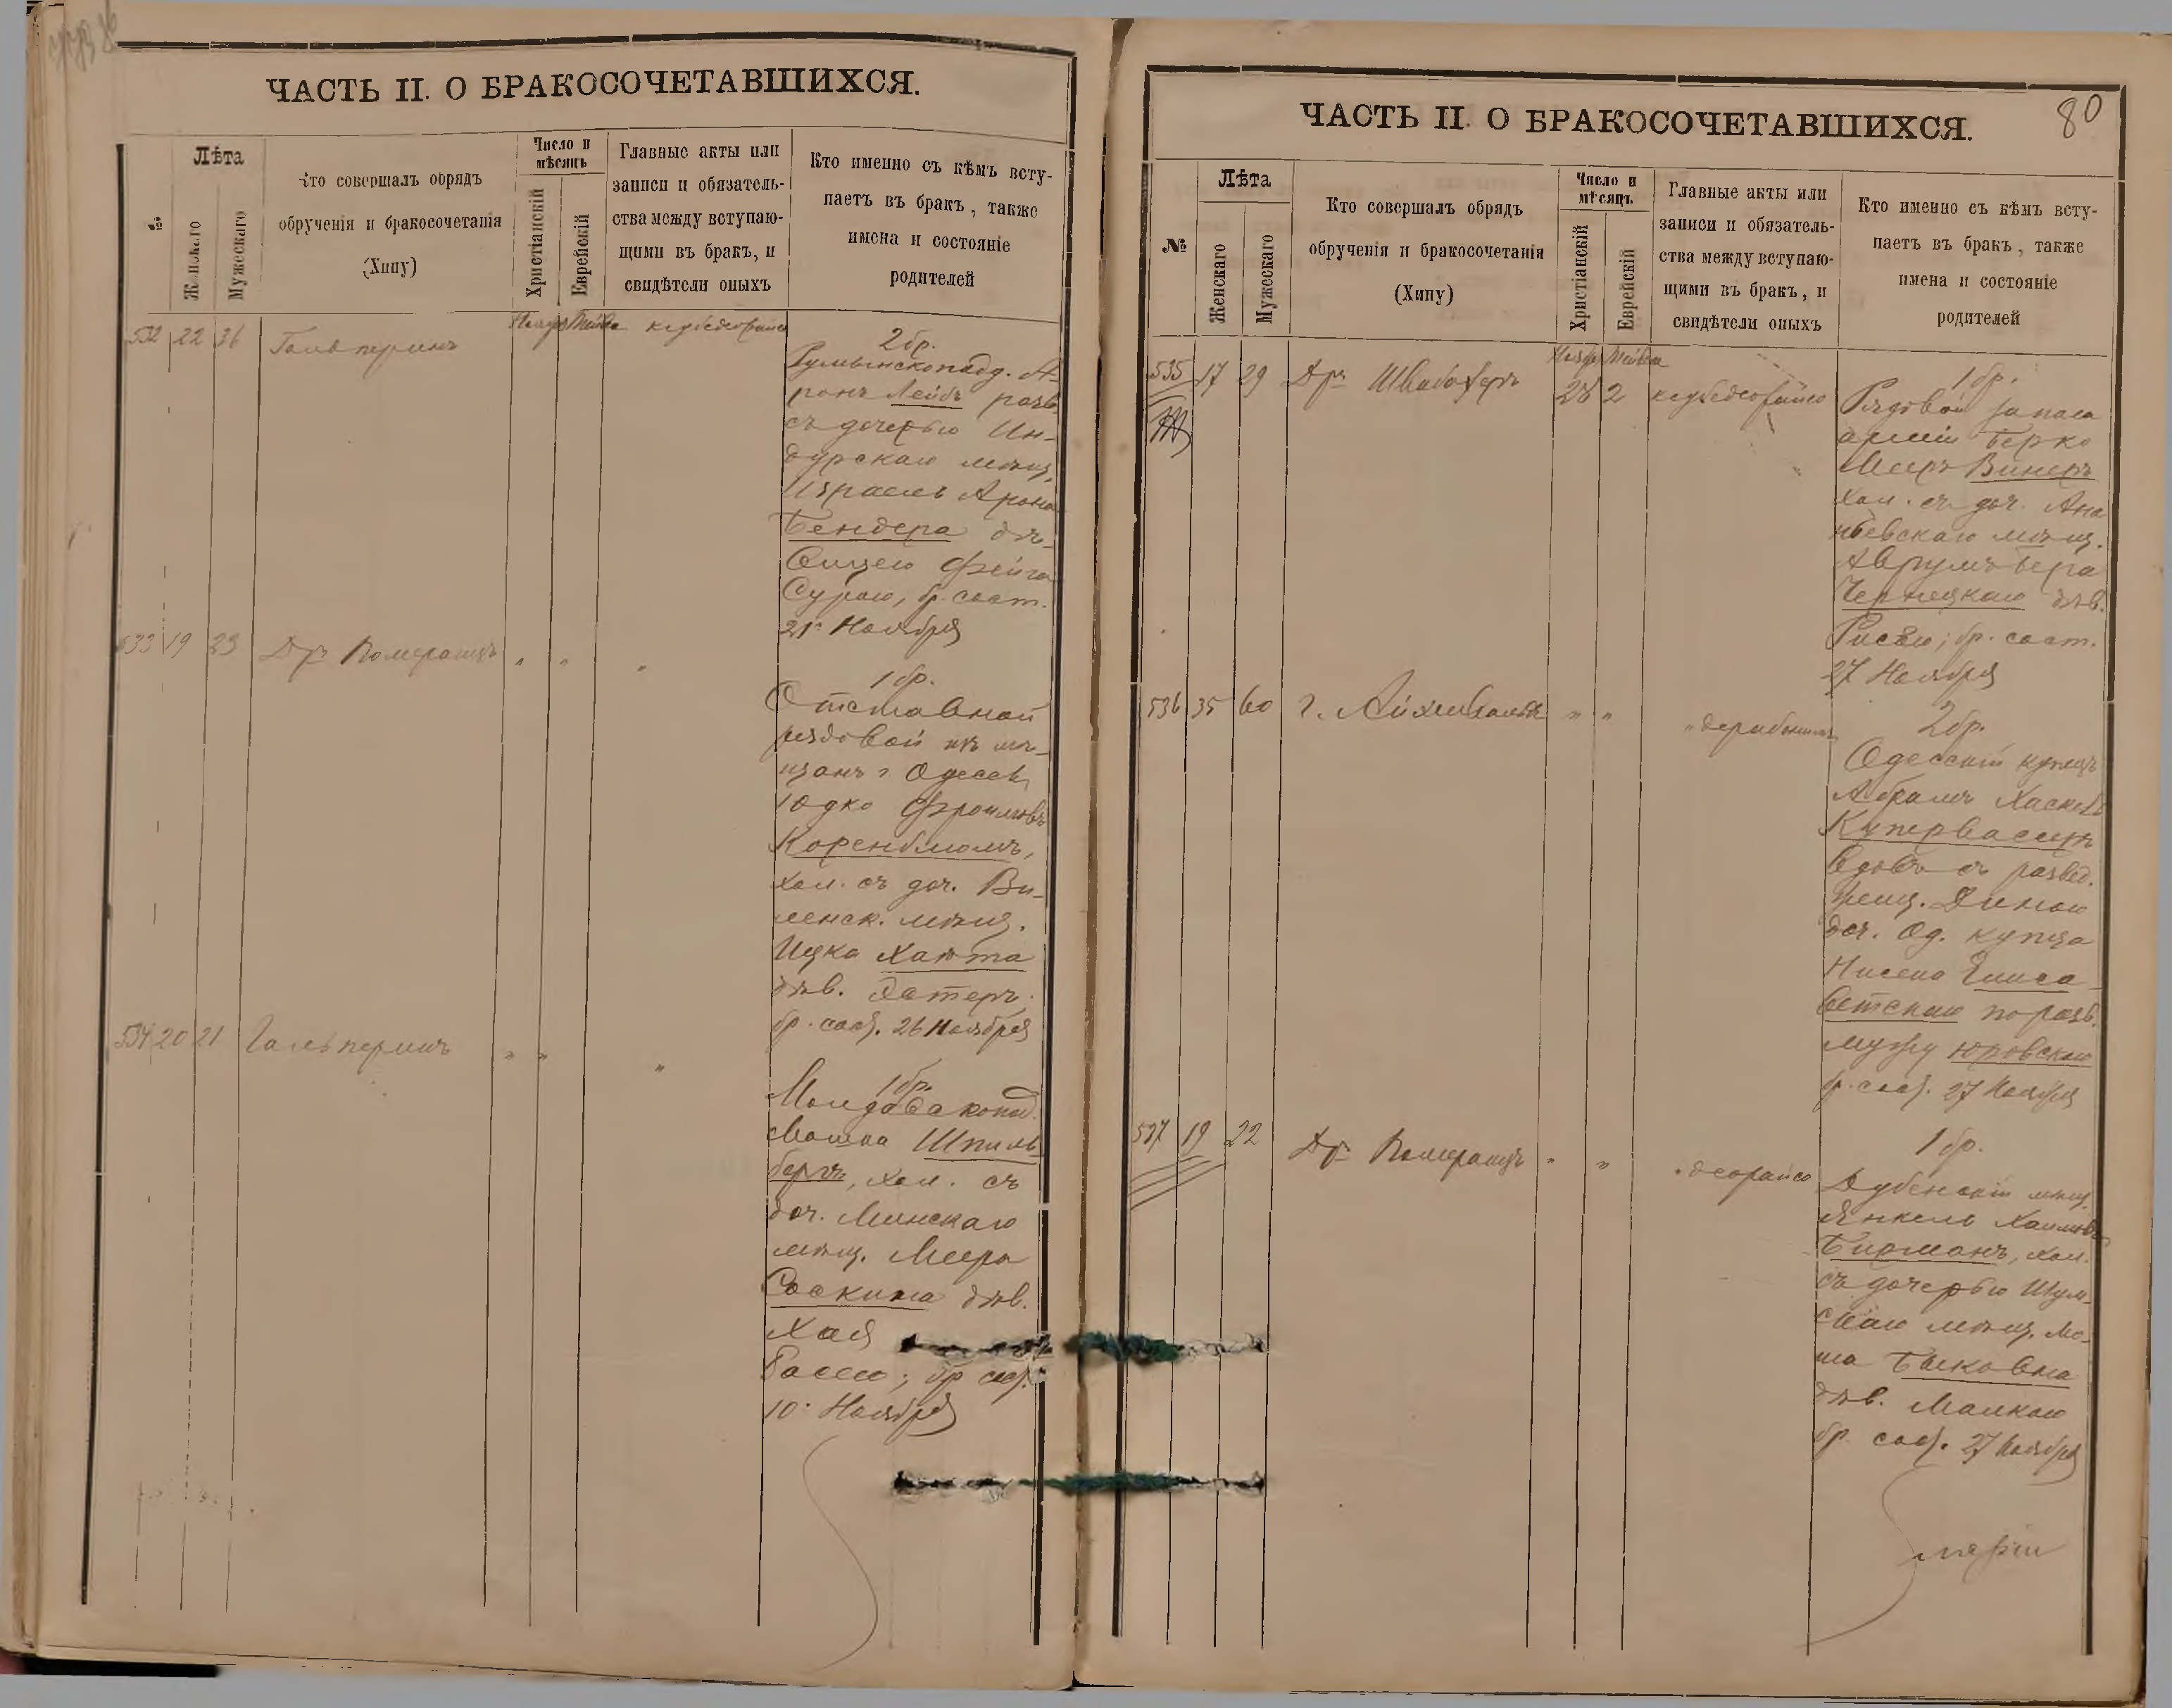 ЧАСТЬ II. О БРАКОСОЧЕТАВШИХСЯ.
№
Лѣта
Женскаго
Мужескаго
Кто совершалъ обрядъ
обрученія и бракосочетанія
(Хипу)
Число и
мѣсяцъ
Христіанскій
Еврейскій
Главные акты или
записи и обязатель-
ства между вступаю-
щими въ бракъ, и
свидѣтели оныхъ
Кто именно съ кѣмъ всту-
паетъ въ бракъ, также
имена и состояніе
родителей
532 22 36 Гальперинъ
2 бр.
Румынскоподд. А-
ронъ Лейбъ разв.
съ дочерью Ин-
дурскаго мѣщ.
Израель Арона
Бендера дѣ-
вицею Фейга
Сурою, бр. сост.
21 Ноября
533 19 23 Дръ Померанцъ " " "
1 бр.
Отставной
рядовой изъ мѣ-
щанъ г. Одессы
Юдко Фроимовъ
Коренблюмъ,
хол. съ доч. Ви-
ленск. мѣщ.
Ицка
дѣв. Эстеръ
бр. сост. 26 Ноября
534 20 21 Гальперинъ " " "
1 бр.
Молдавскопод.
Мошка Шпиль-
бергъ, хол. съ
доч. Минскаго
мѣщ. Меера
Соскина дѣв.
Хая
Басею; бр. сост.
10 Ноября
80
ЧАСТЬ II. О БРАКОСОЧЕТАВШИХСЯ.
№
Лѣта
Женскаго
Мужескаго
Кто совершалъ обрядъ
обрученія и бракосочетанія
(Хипу)
Число и
мѣсяцъ
Христіанскій
Еврейскій
Главные акты или
записи и обязатель-
ства между вступаю-
щими въ бракъ, и
свидѣтели оныхъ
Кто именно съ кѣмъ всту-
паетъ въ бракъ, также
имена и состояніе
родителей
535 17 29 Дръ Швабахеръ 28 2
1 бр.
Рядовой запаса
арміи Берко
Мееръ Винеръ
хол. съ доч. Ана-
ньевскаго мѣщ.
Аврумъ Бера
Чернецкаго дѣв.
бр. сост.
27 Ноября
536 35 60 г. " "
2 бр.
Одесскій купецъ
Абрамъ Хаскель
Купервассеръ
вдовъ съ развед.
женщ. Диною
доч. Од. купца
Нисена Елиса-
ветскаго по разв.
мужу Юровскою
бр. сост. 27 Ноября
537 19 22 Дръ Померанцъ " " " деорайсо
1 бр.
Дубенскій мѣщ.
Янкель Хаимовъ
Бирманъ, хол.
съ дочерью Шум-
скаго мѣщ. Мо-
шка
дѣв. Малкою
бр. сост. 27 Ноября